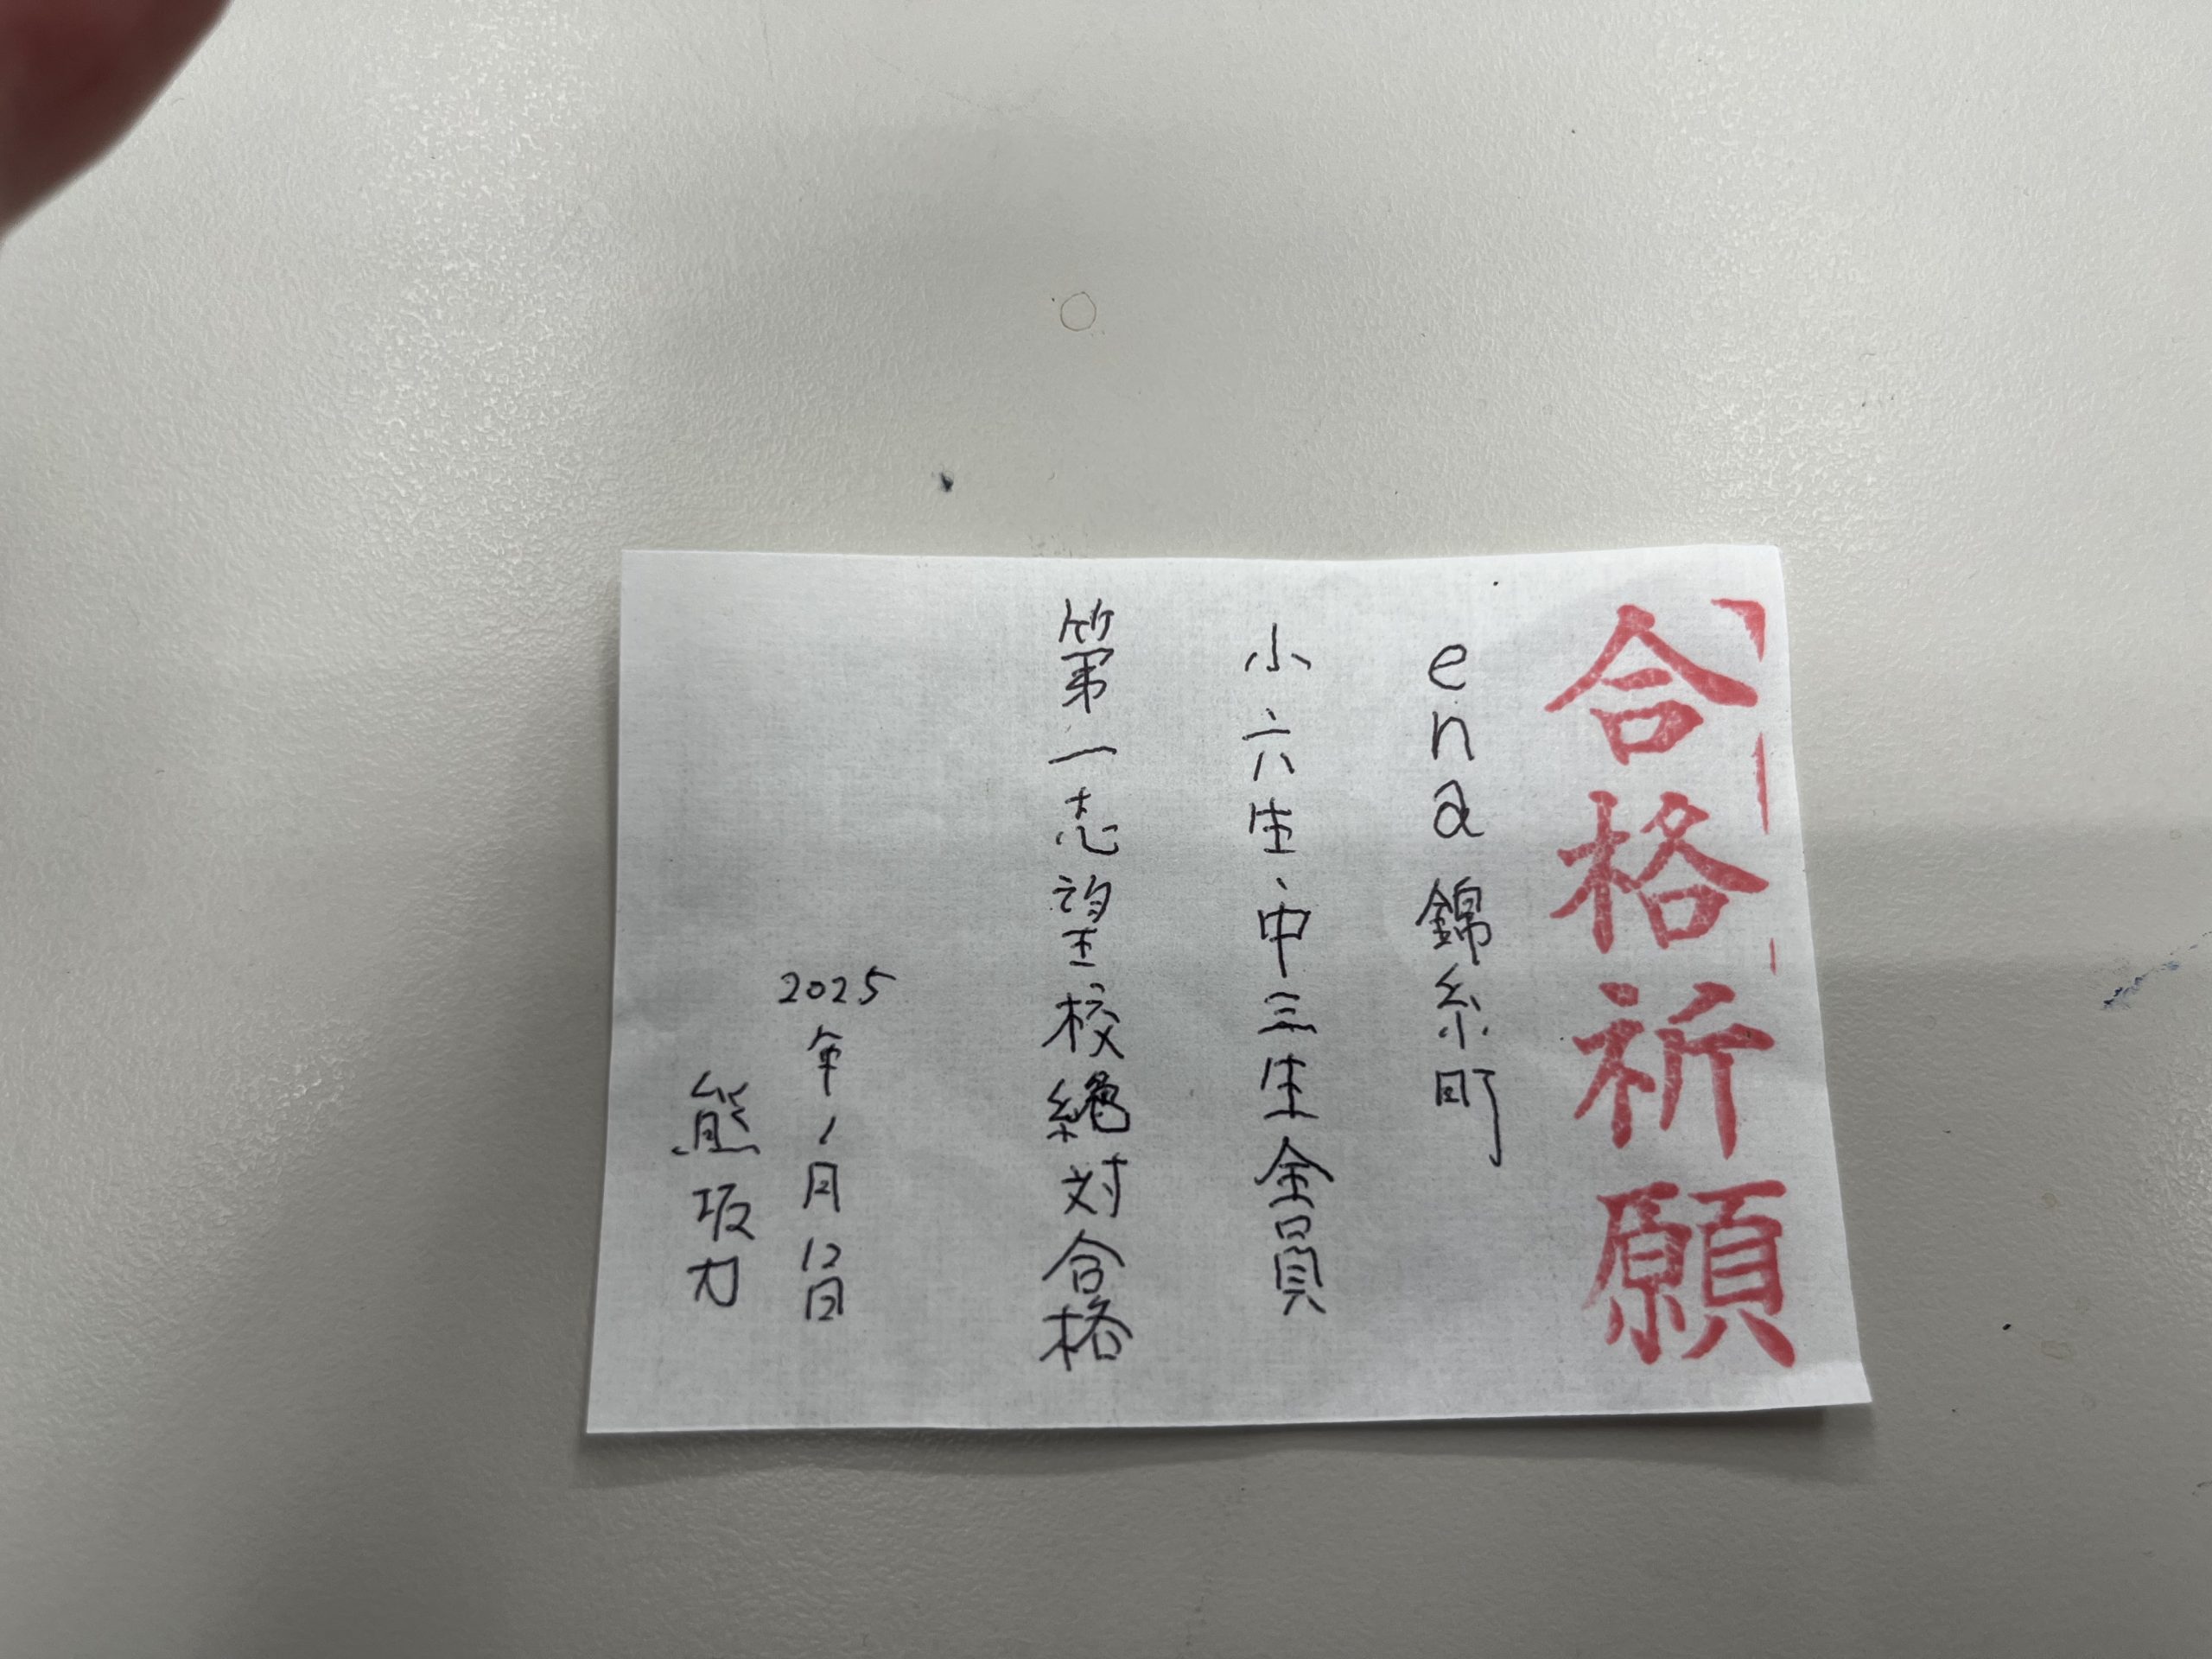 合格祈願
ena錦糸町
小六生、中三生全員
第一志望校絶対合格
2025年1月12日
熊坂力